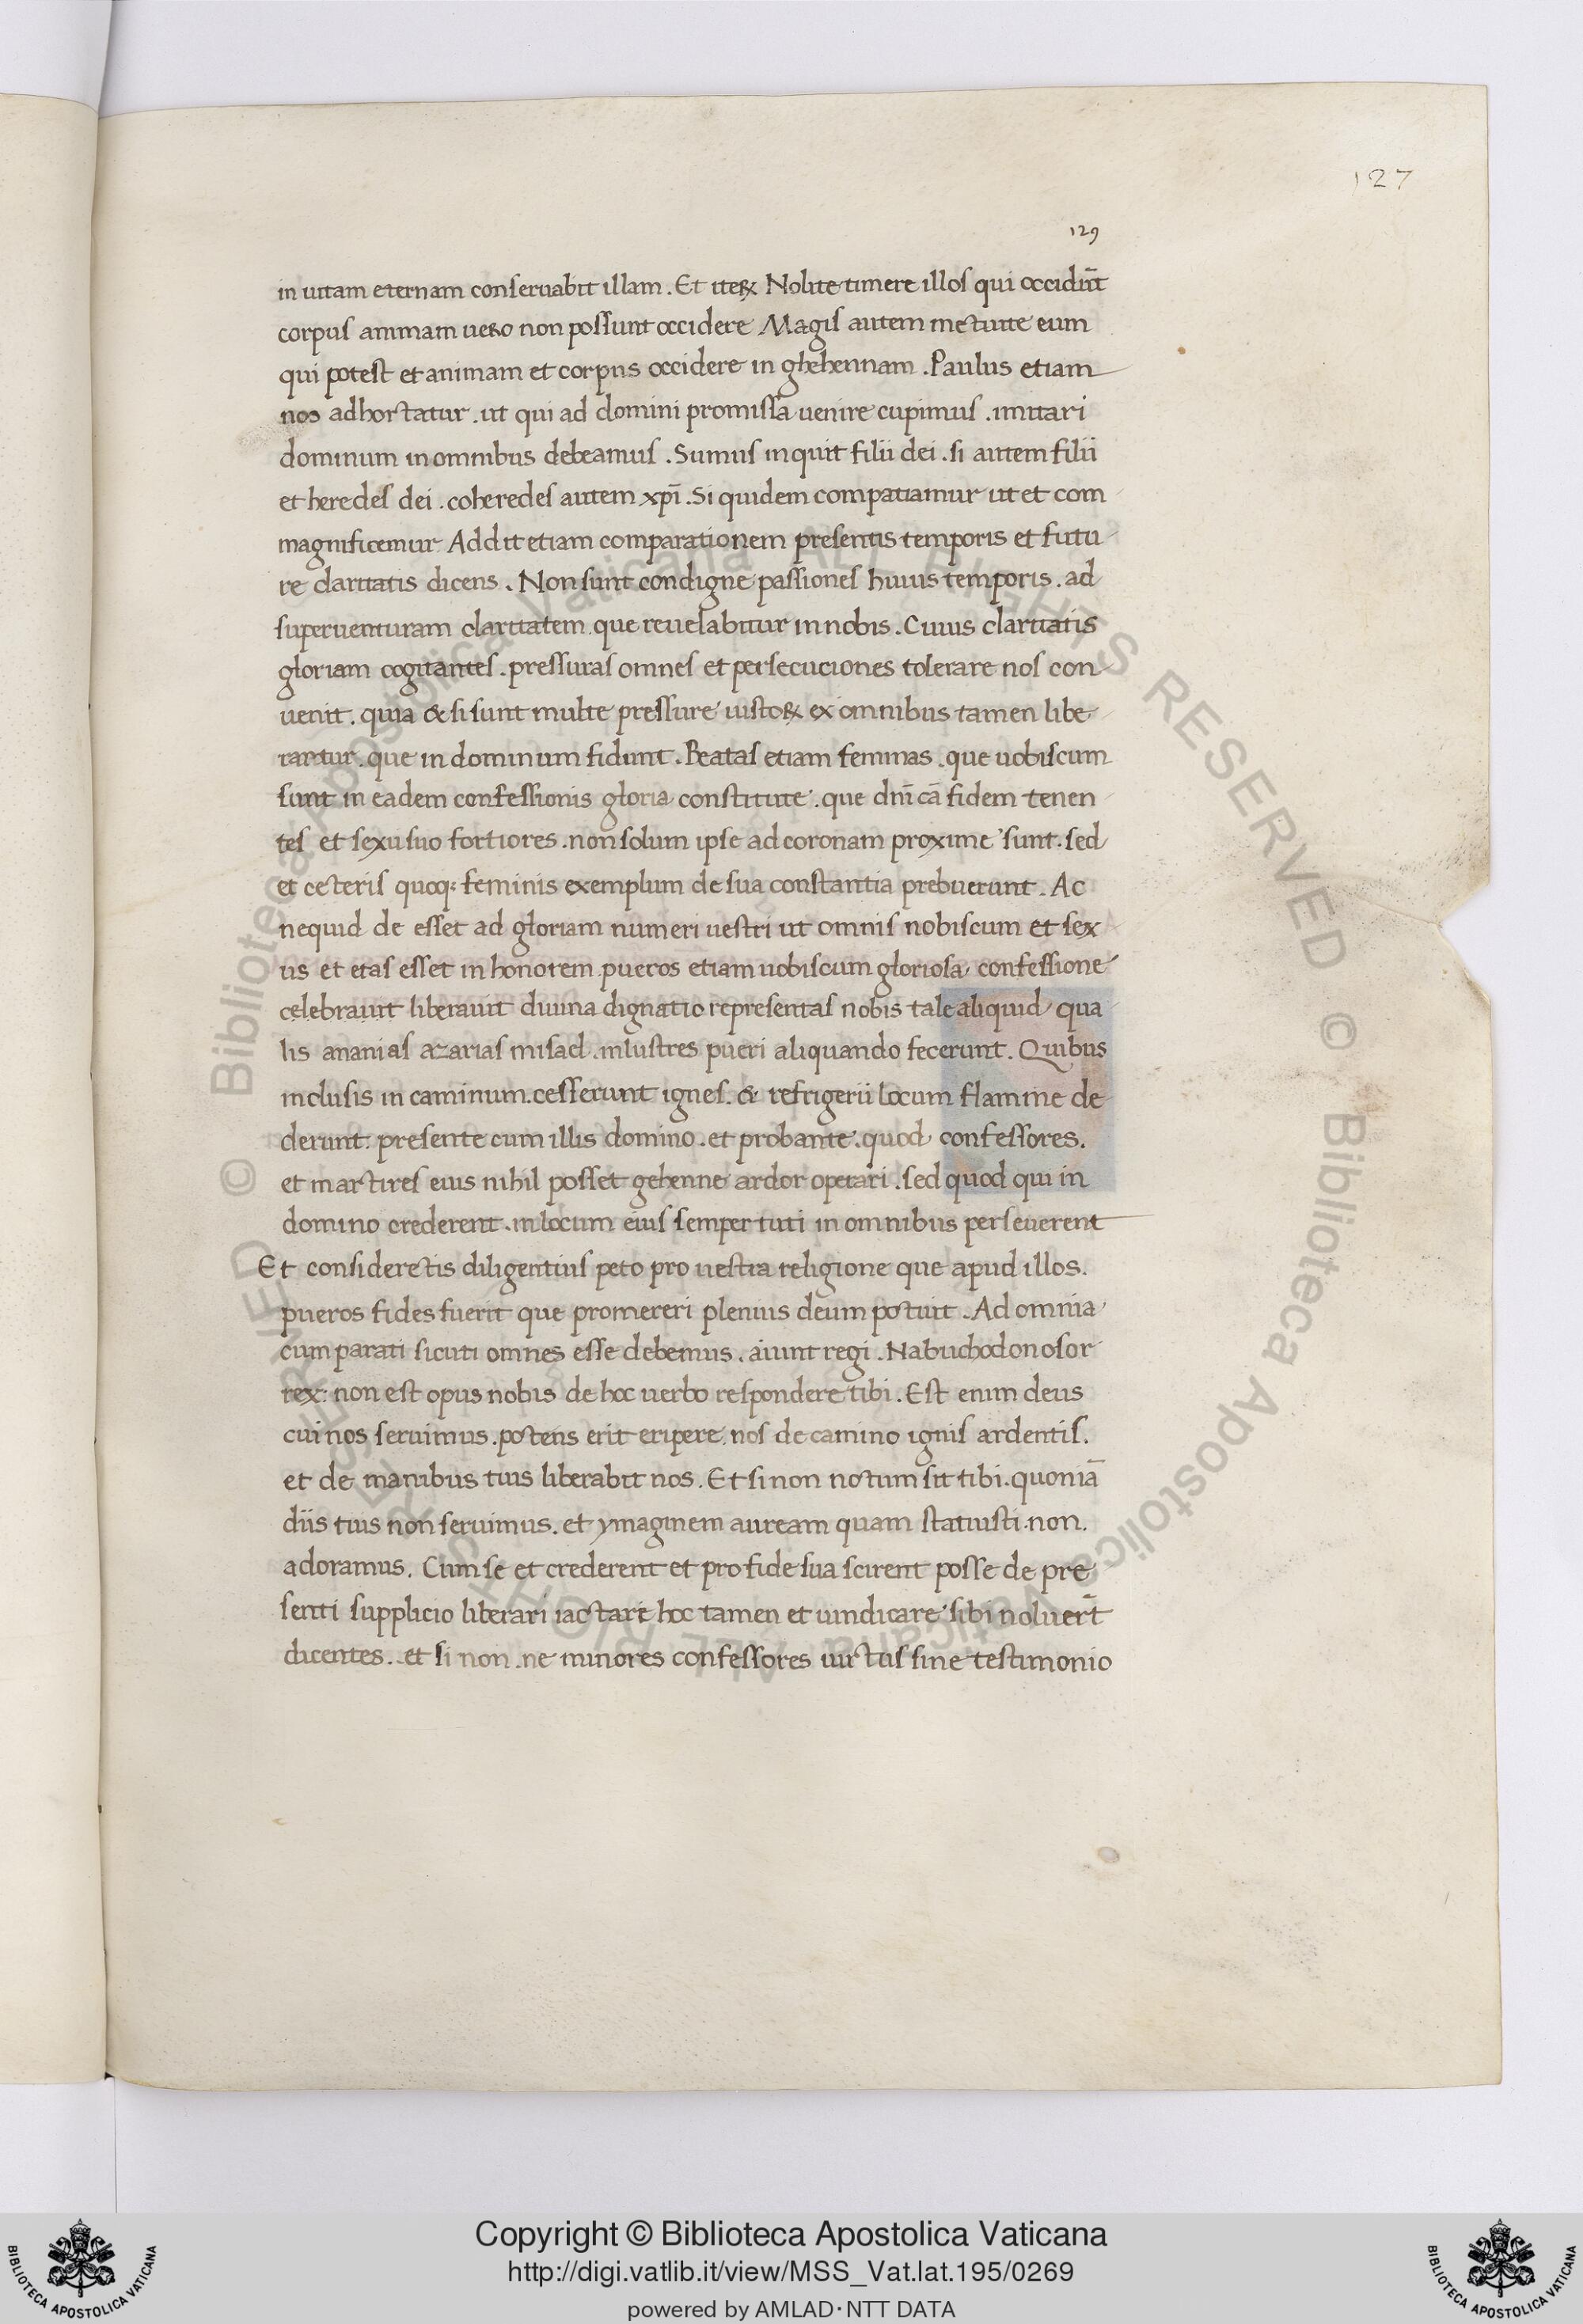 127
129
in uitam eternam conseruabit illam. Et iteꝝ Nolite timere illos qui occidūt
corpus animam uero non possunt occidere Magis autem metuite eum
qui potest et animam et corpus occidere in ghehennam. Paulus etiam
nos adhortatur. ut qui ad domini promissa uenire cupimus. imitari
dominum in omnibus debeamus. Sumus inquit filii dei. si autem filii
et heredes dei. coheredes autem xpī. Si quidem compatiamur ut et com
magnificemur Addit etiam comparationem presentis temporis et futu
re claritatis dicens. Non sunt condigne passiones huius temporis. ad
superuenturam claritatem que reuelabitur in nobis. Cuius claritatis
gloriam cogitantes. pressuras omnes et persecuciones tolerare nos con
uenit. quia & si sunt multe pressure iustoꝝ ex omnibus tamen libe
rantur. que in dominum fidunt. Beatas etiam feminas. que uobiscum
sunt in eadem confessionis gloria constitute. que dnīcā fidem tenen
tes et sexu suo fortiores. non solum ipse ad coronam proxime sunt. sed
et ceteris quoq: feminis exemplum de sua constantia prebuerunt. Ac
nequid de esset ad gloriam numeri uestri ut omnis nobiscum et sex
us et etas esset in honorem pueros etiam uobiscum gloriosa confessione
celebrauit liberauit diuina dignatio representas nobis tale aliquid qua
lis ananias azarias misael. inlustres pueri aliquando fecerunt. Quibus
inclusis in caminum. cesserunt ignes. & refrigerii locum flamme de
derunt. presente cum illis domino. et probante. quod confessores.
et martires eius nihil posset gehenne ardor operari. sed quod qui in
domino crederent. in locum eius semper tuti in omnibus perseuerent
Et consideretis diligentius peto pro uestra religione que apud illos.
pueros fides fuerit que promereri plenius deum potuit. Ad omnia
cum parati sicuti omnes esse debemus. aiunt regi. Nabuchodonosor
rex: non est opus nobis de hoc uerbo respondere tibi. Est enim deus
cui nos seruimus. potens erit eripere nos de camino ignis ardentis.
et de manibus tuis liberabit nos. Et si non notum sit tibi. quoniā
diis tuis non seruimus. et ymaginem auream quam statuisti. non.
adoramus. Cum se et crederent et pro fide sua scirent posse de pre
senti supplicio liberari iactare hoc tamen et uindicare sibi noluer̄t
dicentes. et si non. ne minores confessores uirtus sine testimonio
© Biblioteca Apostolica Vaticana ALL RIGHTS RESERVED © Biblioteca Apostolica Vaticana ALL RIGHTS RESERVED
Copyright © Biblioteca Apostolica Vaticana
http://digi.vatlib.it/view/MSS_Vat.lat.195/0269
powered by AMLAD·NTT DATA
BIBLIOTECA APOSTOLICA VATICANA
BIBLIOTECA APOSTOLICA VATICANA